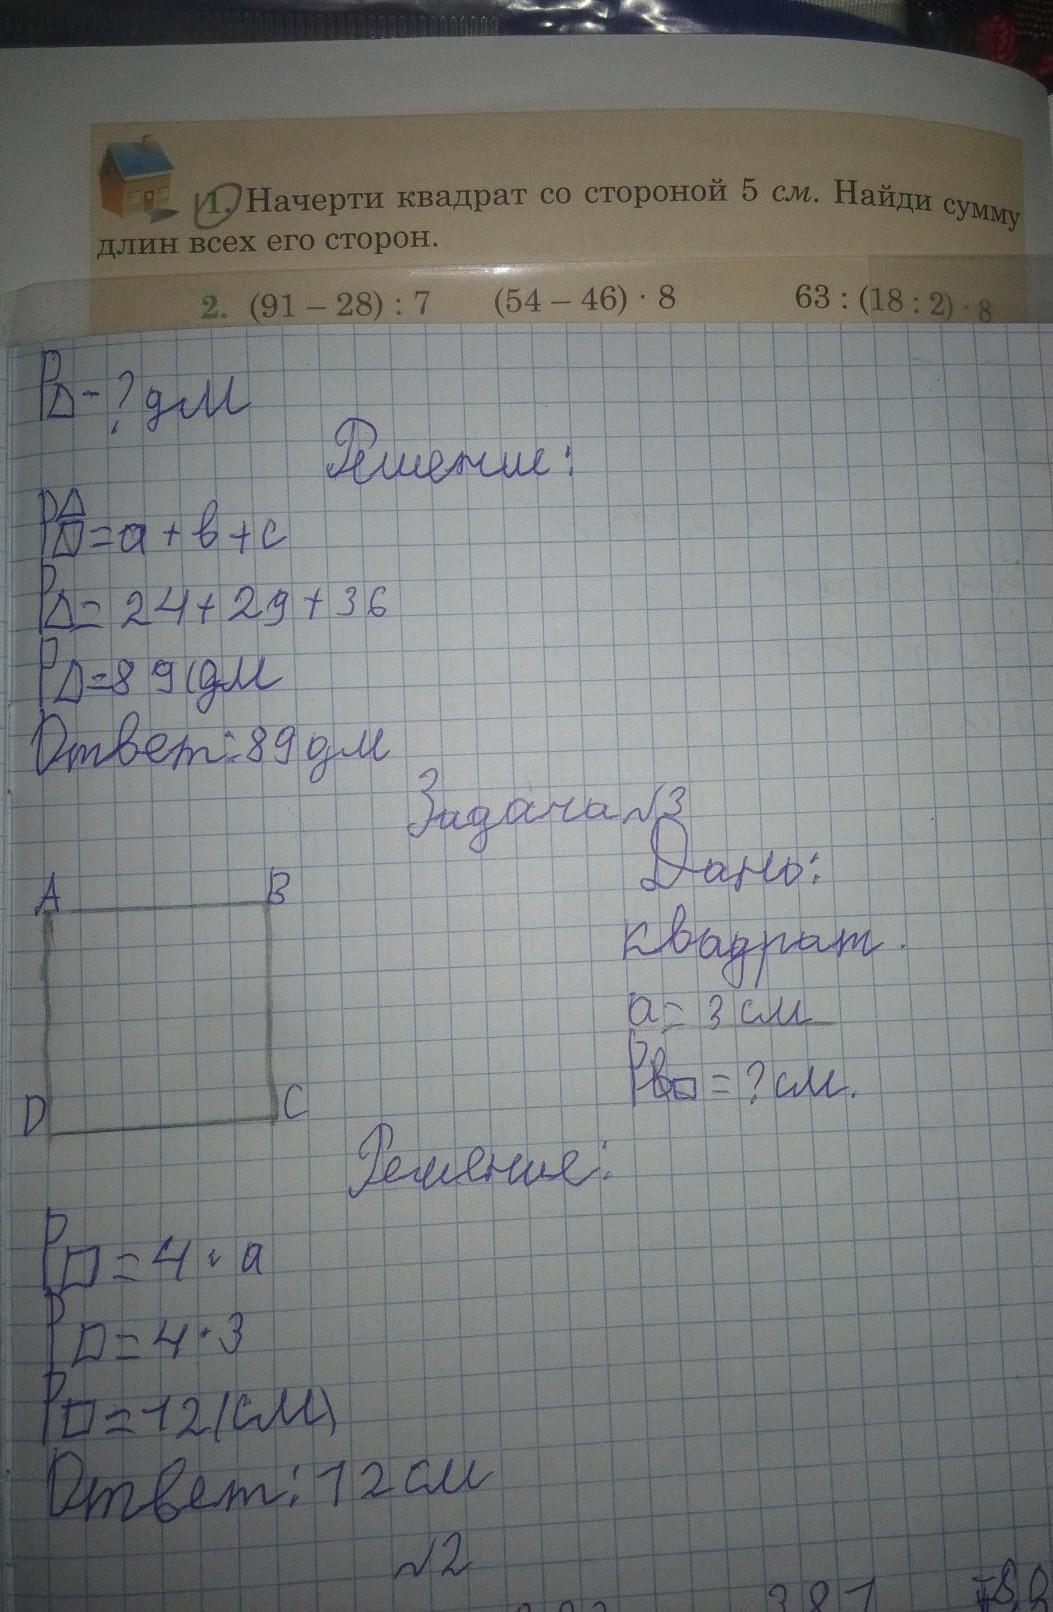 1. Начерти квадрат со стороной 5 см. Найди сумму
длин всех его сторон.
2. (91 – 28) : 7 (54 – 46) · 8 63 : (18 : 2) · 8
P△-? дм
Решение:
P△=a+b+c
P△=24+29+36
P△=89(дм
Ответ:89дм
Задача №3
Дано:
A B
квадрат.
a=3см
D C
P□=?см.
Решение:
P□=4·a
P□=4·3
P□=12(см)
Ответ:12см
№2
381